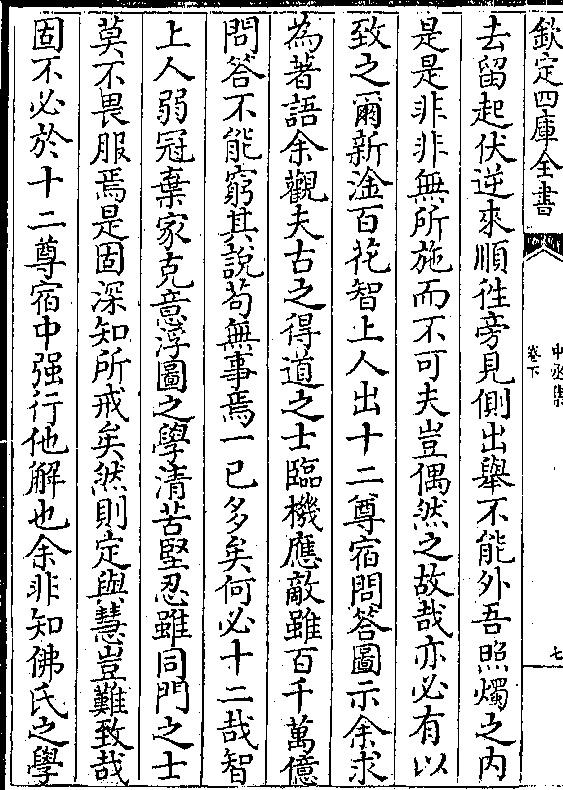 欽定四庫全書
中丞集
卷下
七
去留起伏逆來順徃旁見側出舉不能外吾照燭之内
是是非非無所施而不可夫豈偶然之故哉亦必有以
致之爾新淦百花智上人出十二尊宿問答圖示余求
為著語余觀夫古之得道之士臨機應敵雖百千萬億
問答不能窮其說苟無事焉一已多矣何必十二哉智
上人弱冠棄家克意浮圖之學清苦堅忍雖同門之士
莫不畏服焉是固深知所戒矣然則定與慧豈難致哉
固不必於十二尊宿中强行他解也余非知佛氏之學